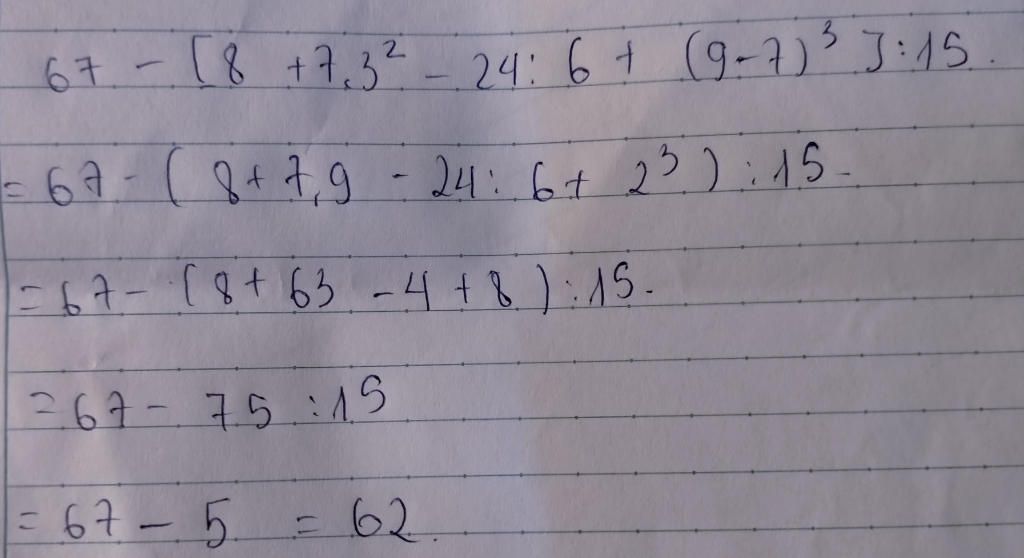 67 - [8 + 7.3² - 24 : 6 + (9-7)³] : 15.
= 67 - (8 + 7.9 - 24 : 6 + 2³) : 15.
= 67 - (8 + 63 - 4 + 8) : 15.
= 67 - 75 : 15
= 67 - 5 = 62.